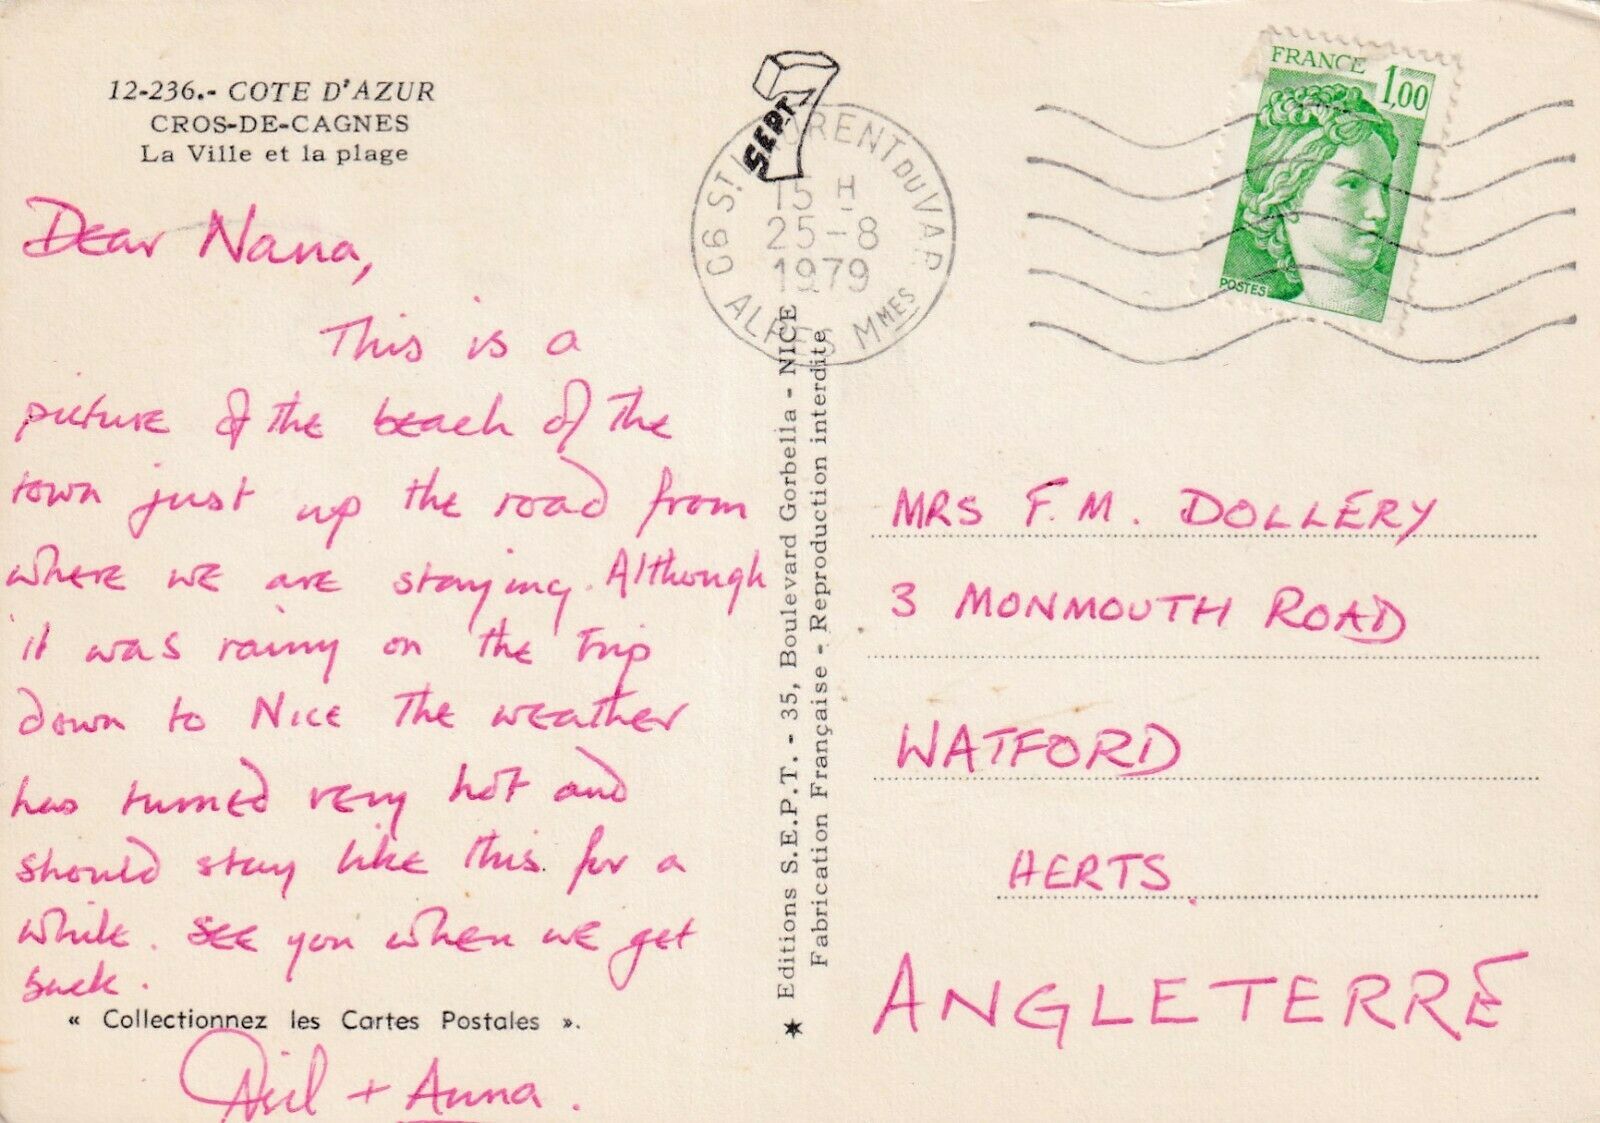 12-236.- COTE D'AZUR
CROS-DE-CAGNES
La Ville et la plage
Dear Nana,
This is a
picture of the beach of the
town just up the road from
where we are staying. Although
it was rainy on the trip
down to Nice the weather
has turned very hot and
should stay like this for a
while. See you when we get
back.
« Collectionnez les Cartes Postales ».
+ Anna.
SEPT
06 ST LAURENT DU VAR
15 H
25-8
1979
ALPES MMES
FRANCE 1,00
POSTES
★ Editions S.E.P.T. - 35, Boulevard Gorbella - NICE
Fabrication Française - Reproduction interdite
MRS F.M. DOLLERY
3 MONMOUTH ROAD
WATFORD
HERTS
ANGLETERRE